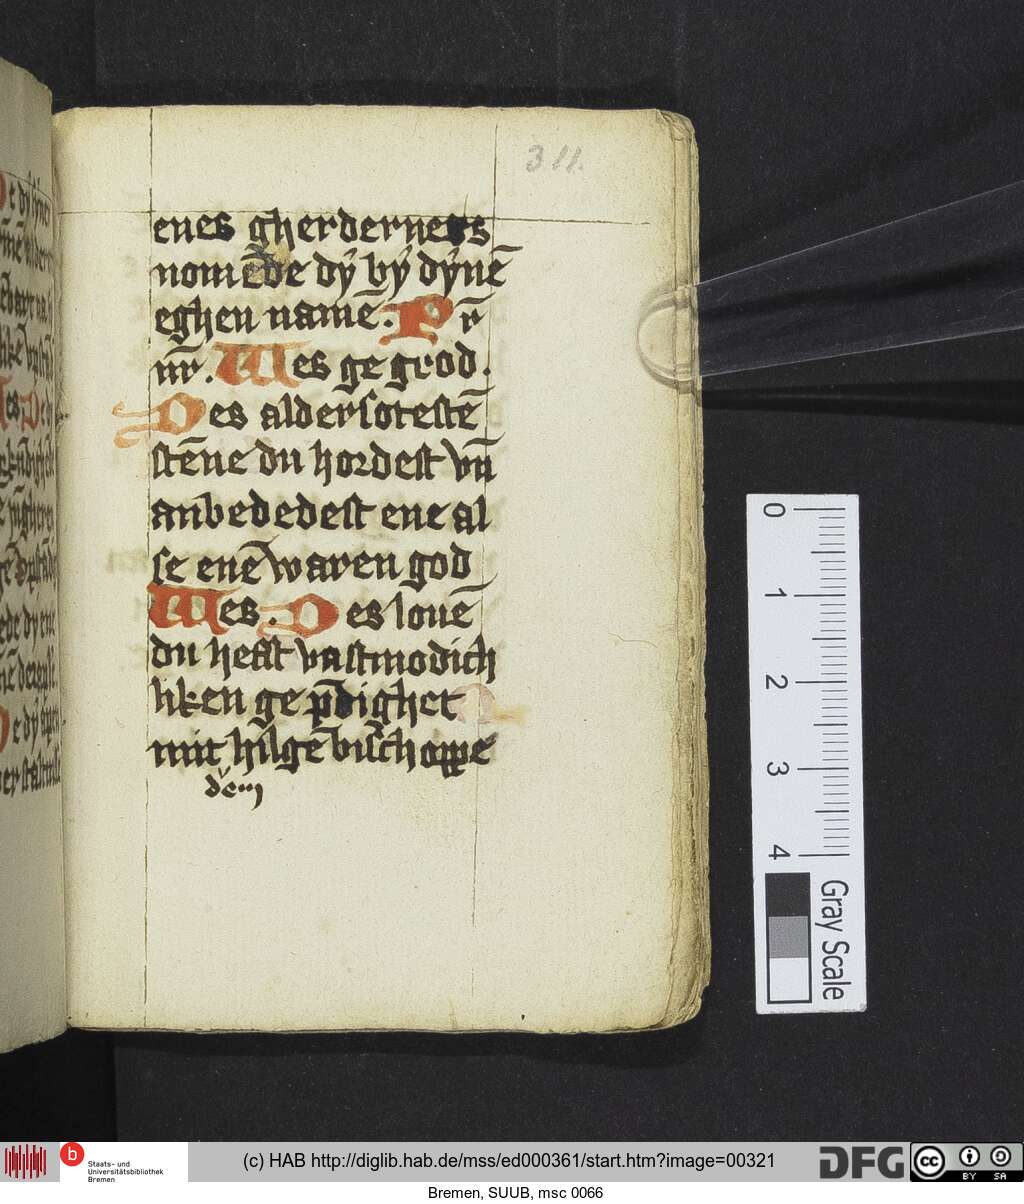 311.
enes gherderners
nomēde dÿ bÿ dÿnē
eghen namē. Pr̄
nr̄. Wes ge grod.
Des aldersotestē
stēne du hordest vn̄
anbededest ene al
se enē waren god
Wes. Des louē
du hest vastmodich
liken ge p̄dighet
mit hilgē bisschoppe
0
1
2
3
4
Gray Scale
b Staats- und
Universitätsbibliothek
Bremen
(c) HAB http://diglib.hab.de/mss/ed000361/start.htm?image=00321
DFG
cc BY SA
Bremen, SUUB, msc 0066